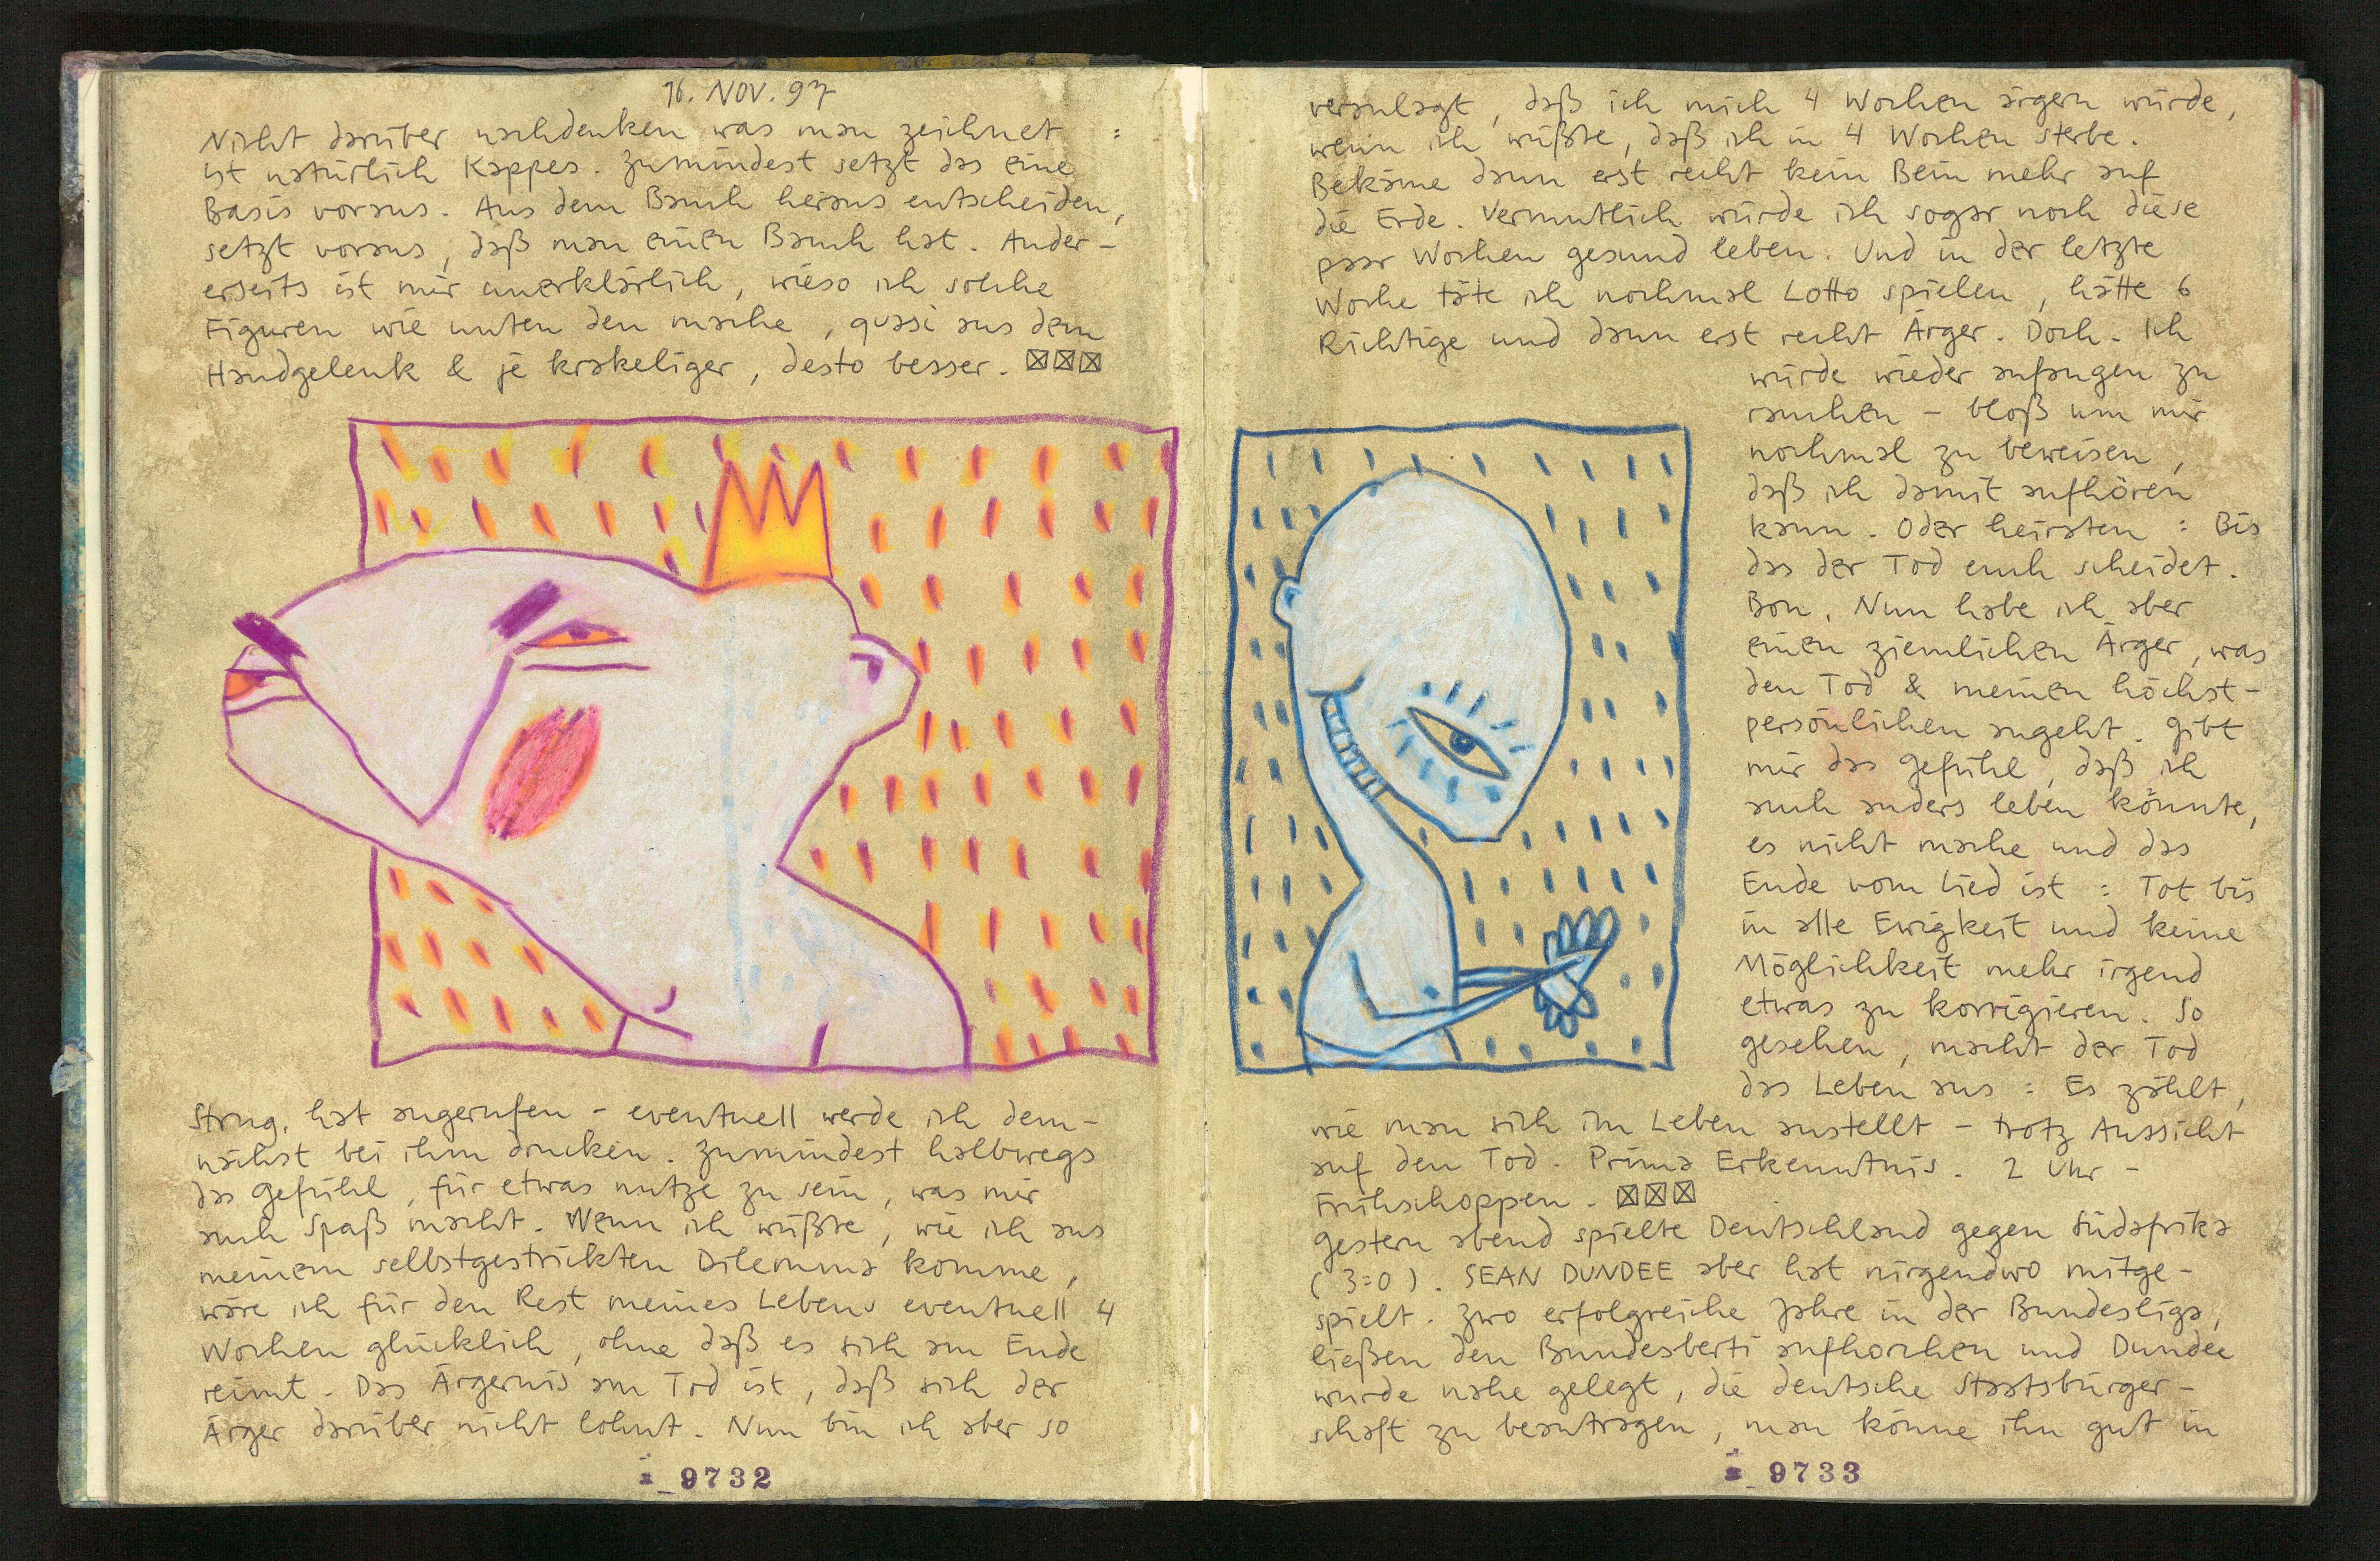 16. NOV. 97
Nicht darüber nachdenken was man zeichnet :
ist natürlich Kappes. Zumindest setzt das eine
Basis voraus. Aus dem Bauch heraus entscheiden,
setzt voraus, daß man einen Bauch hat. Ander-
erseits ist mir unerklärlich, wieso ich solche
Figuren wie unten den mache, quasi aus dem
Handgelenk & je krakeliger, desto besser. ☒☒☒
Strng. hat angerufen - eventuell werde ich dem-
nächst bei ihm drucken. Zumindest halbwegs
das Gefühl, für etwas nutze zu sein, was mir
auch Spaß macht. Wenn ich wüßte, wie ich aus
meinem selbstgestrickten Dilemma komme,
wäre ich für den Rest meines Lebens eventuell 4
Wochen glücklich, ohne daß es sich am Ende
reimt. Das Ärgernis am Tod ist, daß sich der
Ärger darüber nicht lohnt. Nun bin ich aber so
9732
veranlagt, daß ich mich 4 Wochen ärgern würde,
wenn ich wüßte, daß ich in 4 Wochen sterbe.
Bekäme dann erst recht kein Bein mehr auf
die Erde. Vermutlich würde ich sogar noch diese
paar Wochen gesund leben. Und in der letzte
Woche täte ich nochmal Lotto spielen, hätte 6
Richtige und dann erst recht Ärger. Doch. Ich
würde wieder anfangen zu
rauchen - bloß um mir
nochmal zu beweisen,
daß ich damit aufhören
kann. Oder heiraten : Bis
das der Tod euch scheidet.
Bon. Nun habe ich aber
einen ziemlichen Ärger, was
den Tod & meinen höchst-
persönlichen angeht. Gibt
mir das Gefühl, daß ich
auch anders leben könnte,
es nicht mache und das
Ende vom Lied ist : Tot bis
in alle Ewigkeit und keine
Möglichkeit mehr irgend
etwas zu korrigieren. So
gesehen, macht der Tod
das Leben aus : Es zählt,
wie man sich im Leben anstellt - trotz Aussicht
auf den Tod. Prima Erkenntnis. 2 Uhr -
Frühschoppen. ☒☒☒
Gestern abend spielte Deutschland gegen Südafrika
(3:0). SEAN DUNDEE aber hat nirgendwo mitge-
spielt. Zwo erfolgreiche Jahre in der Bundesliga,
ließen den Bundesberti aufhorchen und Dundee
wurde nahe gelegt, die deutsche Staatsbürger-
schaft zu beantragen, man könne ihn gut in
9733